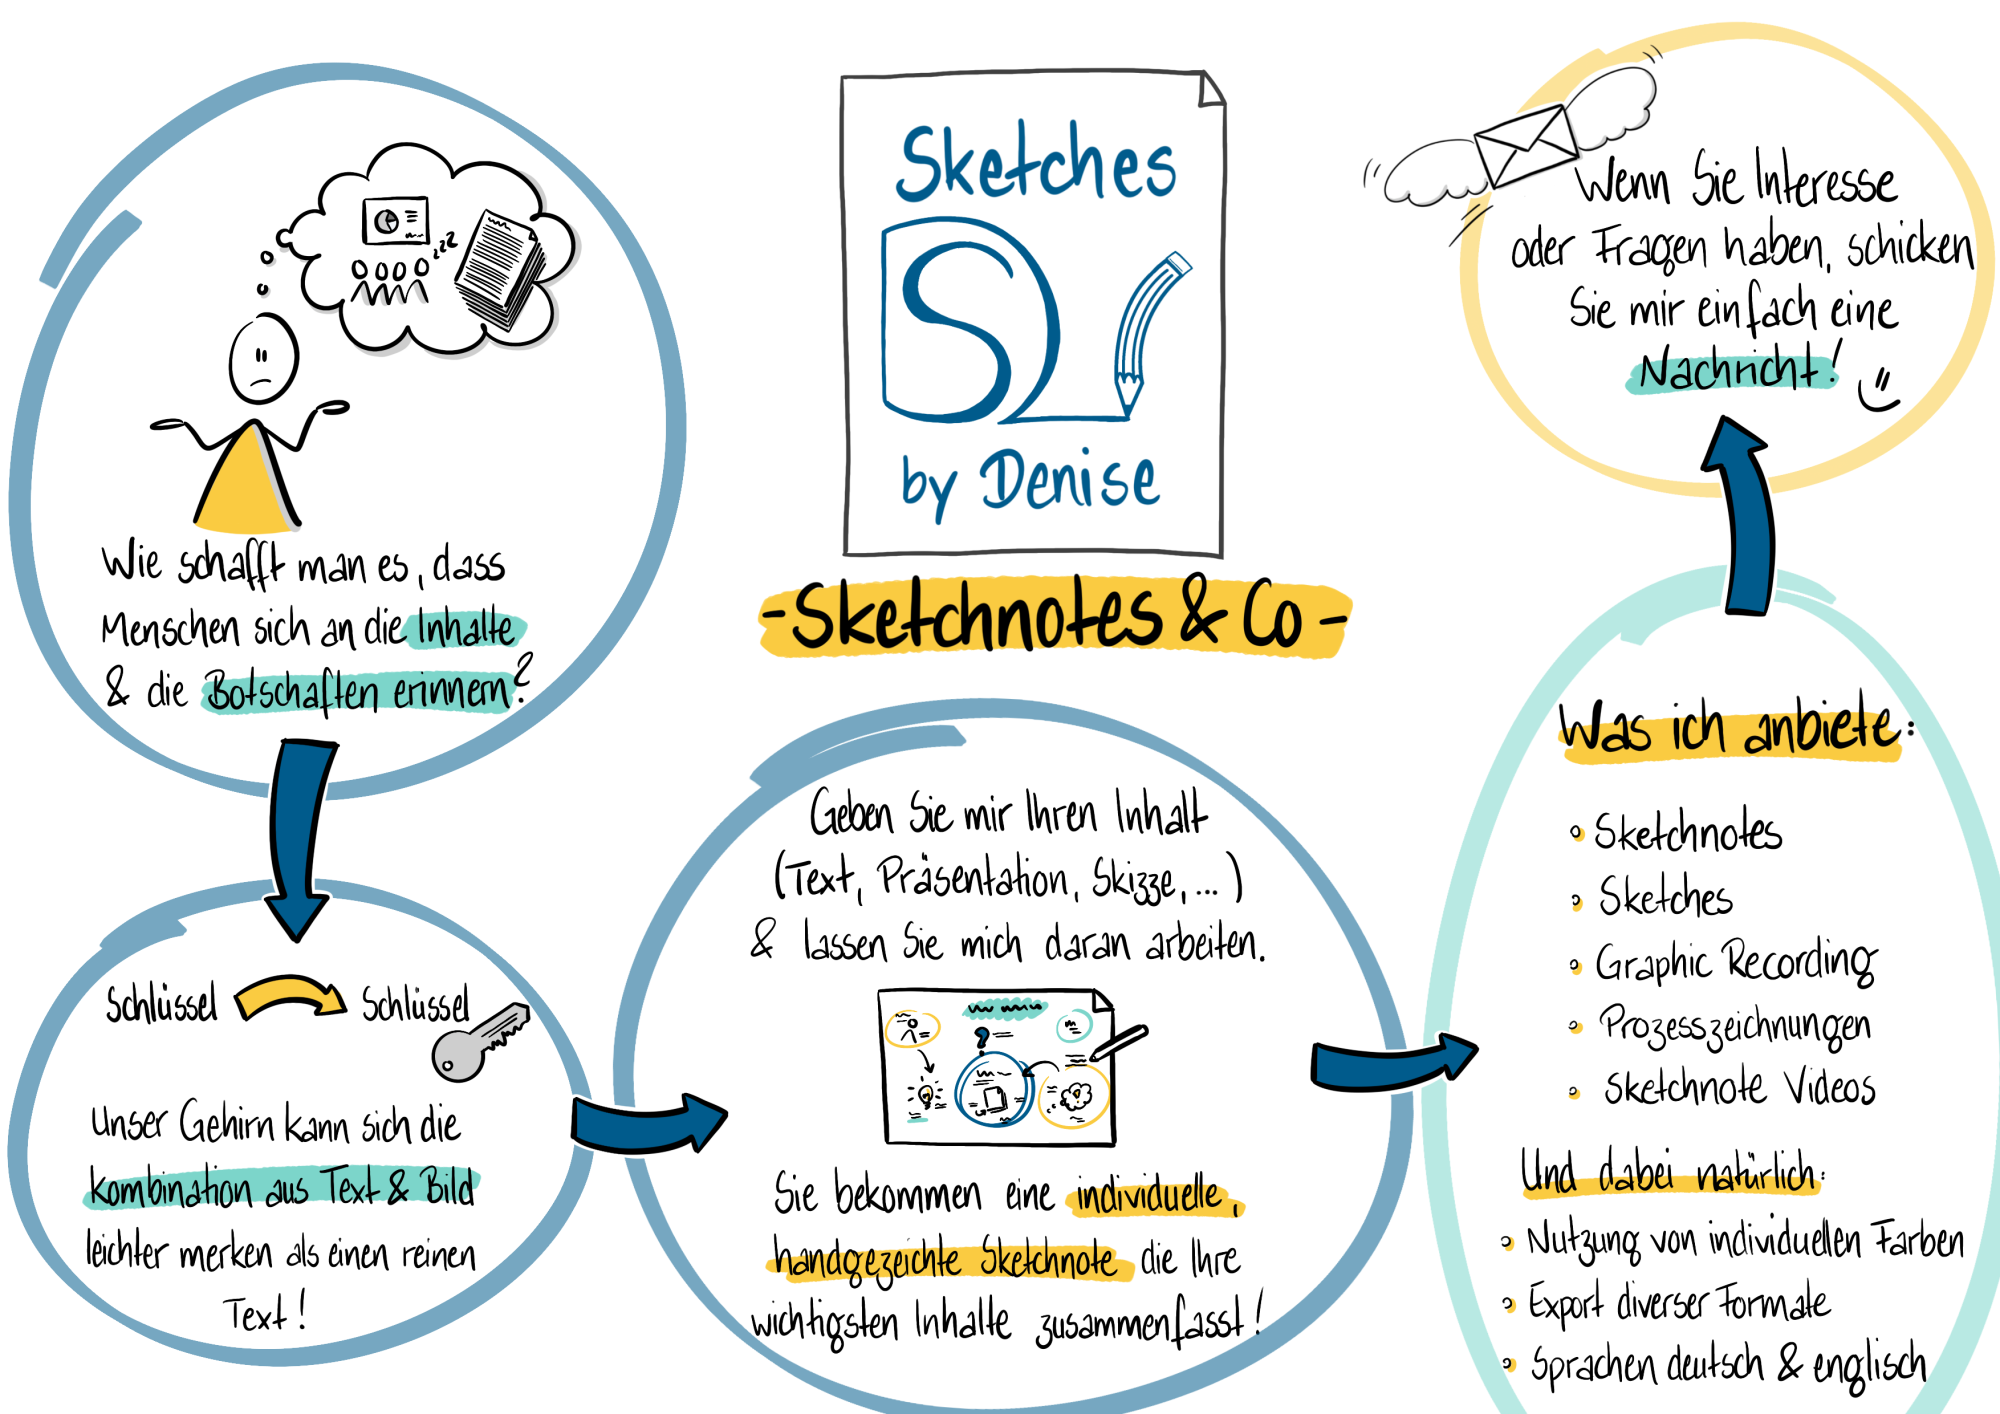 Sketches
by Denise
-Sketchnotes & Co-
Wie schafft man es, dass
Menschen sich an die Inhalte
& die Botschaften erinnern?
zzz
Schlüssel
Schlüssel
Unser Gehirn kann sich die
Kombination aus Text & Bild
leichter merken als einen reinen
Text!
Geben Sie mir Ihren Inhalt
(Text, Präsentation, Skizze, ...)
& lassen Sie mich daran arbeiten.
Sie bekommen eine individuelle,
handgezeichte Sketchnote die Ihre
wichtigsten Inhalte zusammenfasst!
Was ich anbiete:
Sketchnotes
Sketches
Graphic Recording
Prozesszeichnungen
Sketchnote Videos
Und dabei natürlich:
Nutzung von individuellen Farben
Export diverser Formate
Sprachen deutsch & englisch
Wenn Sie Interesse
oder Fragen haben, schicken
Sie mir einfach eine
Nachricht!